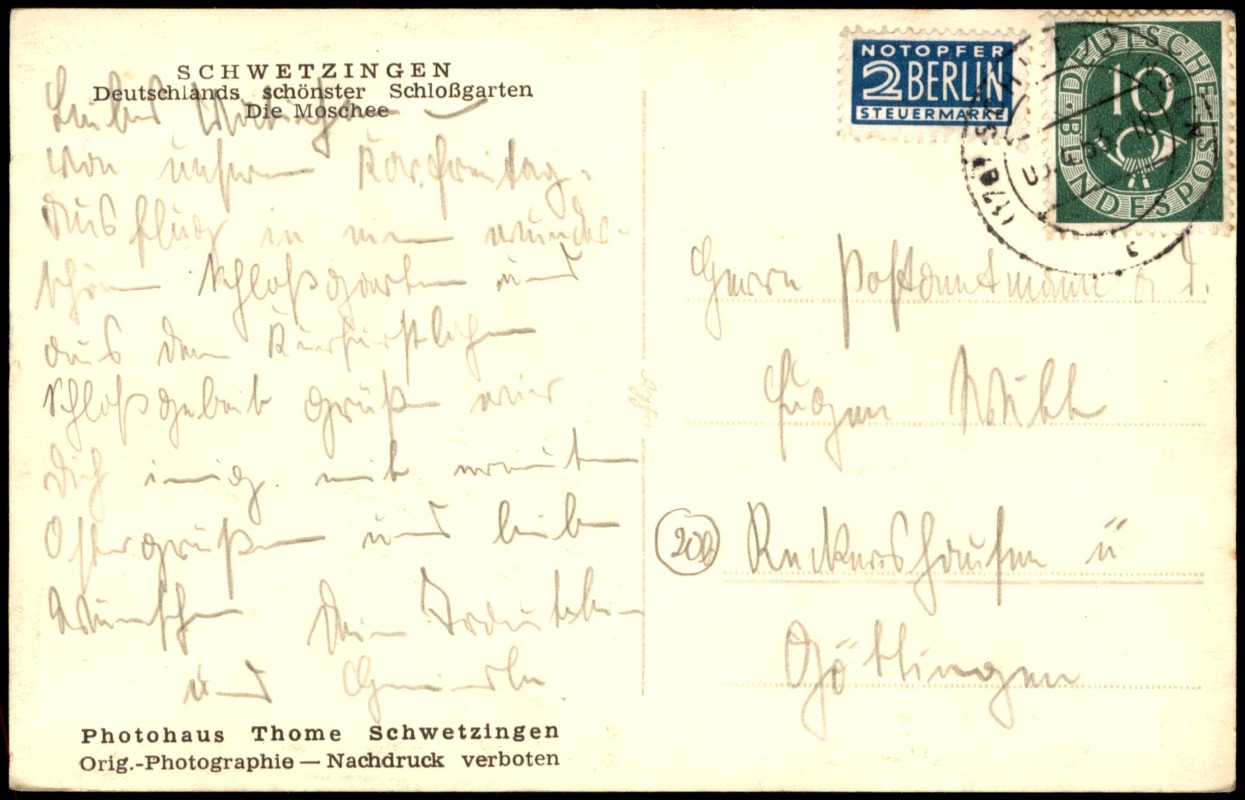 SCHWETZINGEN
Deutschlands schönster Schloßgarten
Die Moschee
Lieber
von unserem Karfreitag-
Ausflug in den wunder-
schönen Schloßgarten und
aus dem Kurfürstlichen
Schloßgebäude grüßen wir
Dich innig mit
Ostergrüßen und lieben
Wünschen Dein
und
Photohaus Thome Schwetzingen
Orig.-Photographie — Nachdruck verboten
NOTOPFER
2 BERLIN
STEUERMARKE
DEUTSCHE BUNDESPOST
10
Herrn Postamtmann a. D.
Eugen
(20b) Reckershausen ü
Göttingen